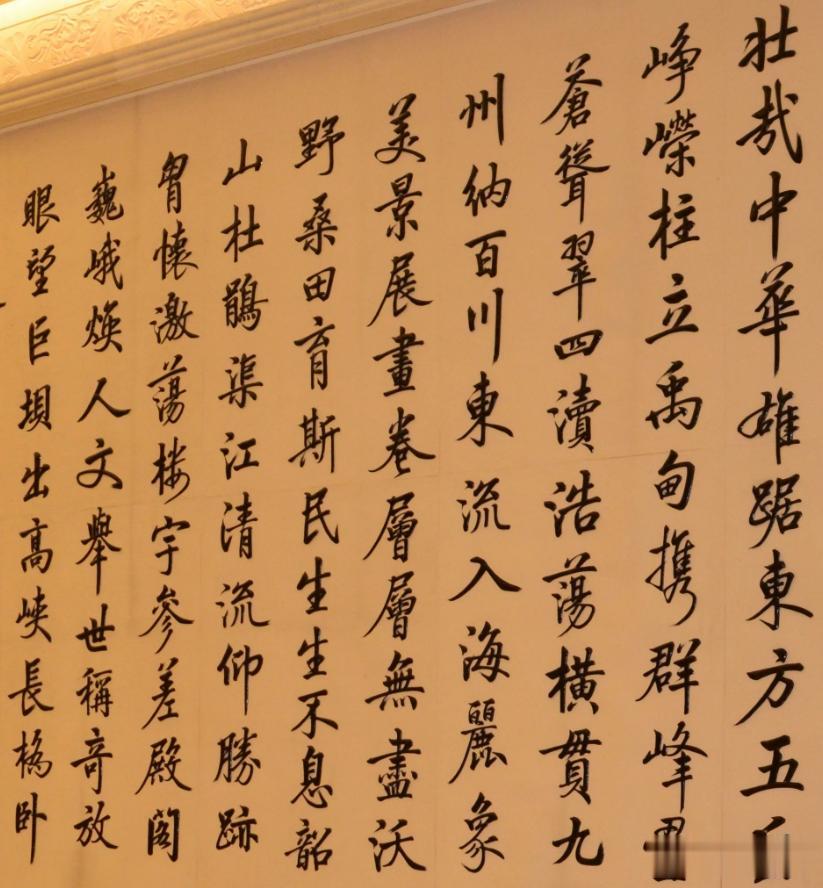 壯哉中華雄踞東方五
崢嶸柱立禹甸携群峰
蒼聳翠四瀆浩蕩橫貫九
州納百川東流入海麗象
美景展畫卷層層無盡沃
野桑田育斯民生生不息韶
山杜鵑渠江清流仰勝跡
胷懷激蕩楼宇參差殿閣
巍峨焕人文舉世稱竒放
眼望巨垻出高峽長橋卧